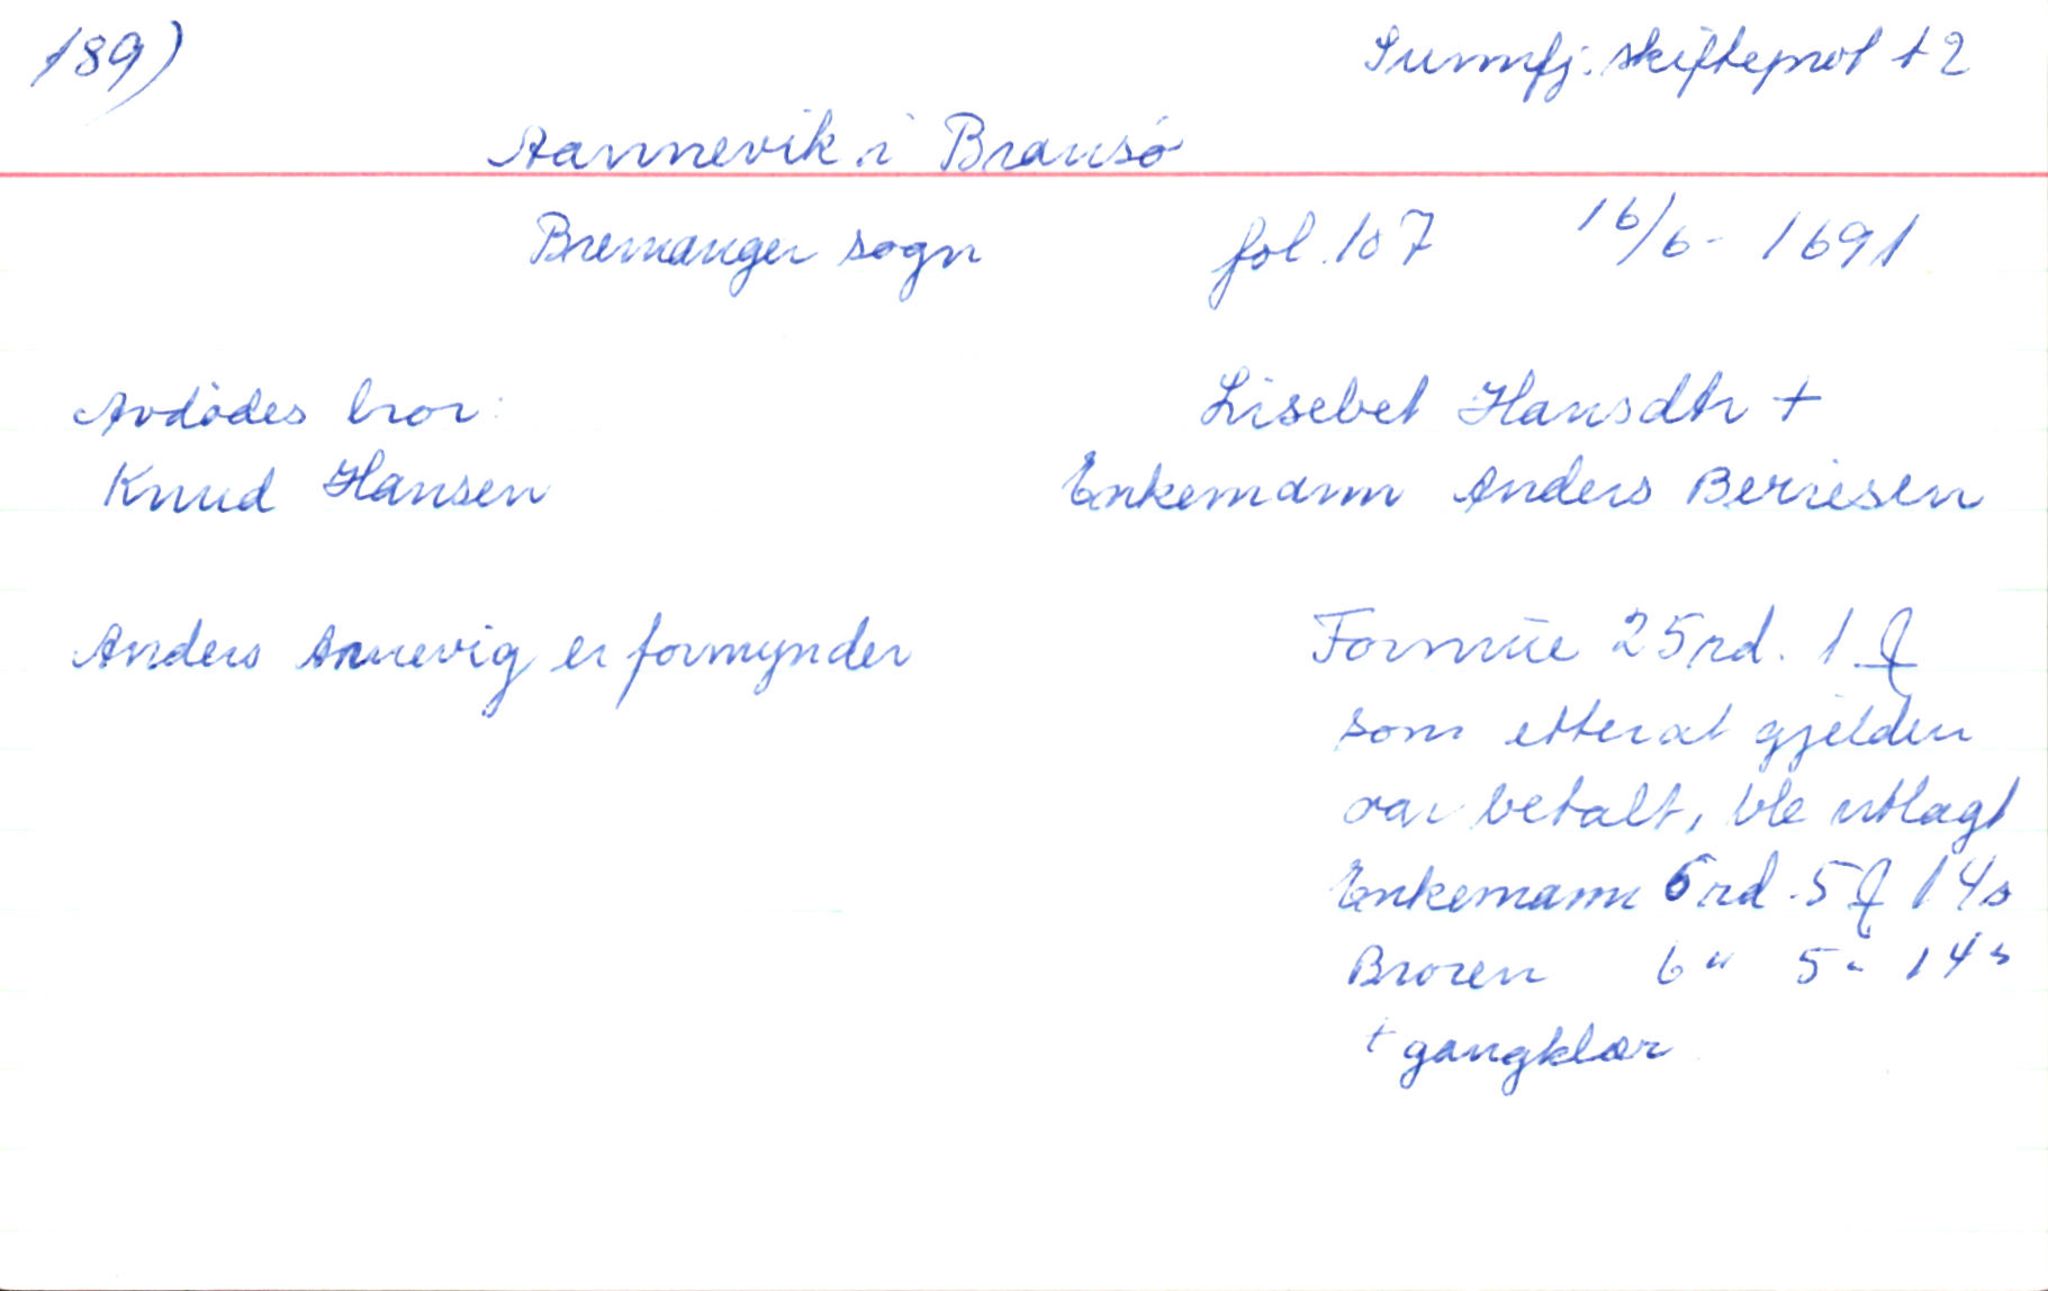 189)
Sunnfj. skifteprot t 2
Aannevik i Bransö
Bremanger sogn fol. 107 16/6 - 1691
Avdödes bror: Lisebet Hansdtr +
Knud Hansen Enkemann Anders Beriesen
Anders Annevig er formynder Formue 25 rd. 1 ℔
som etterat gjelden
var betalt, ble utlagt
Enkemann 6 rd. 5 ℔ 14 s
Broren 6 " 5 " 14 s
+ gangklær